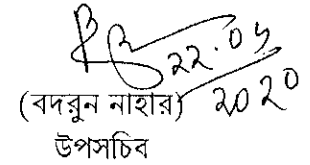 22.05
2020
(বদরুন নাহার)
উপসচিব